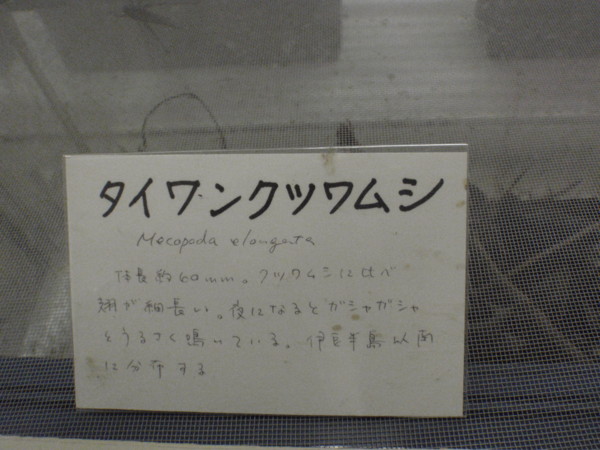 タイワンクツワムシ
Mecopoda elongata
体長約60mm。クツワムシに比べ
翅が細長い。夜になるとガシャガシャ
とうるさく鳴いている。伊豆半島以南
に分布する